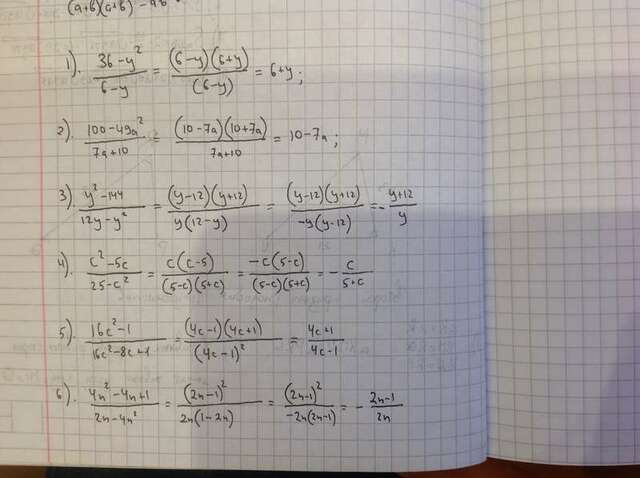 (a+b)(a+b) - ab
1). \frac{36-y^2}{6-y} = \frac{(6-y)(6+y)}{(6-y)} = 6+y;
2). \frac{100-49a^2}{7a+10} = \frac{(10-7a)(10+7a)}{7a+10} = 10-7a;
3). \frac{y^2-144}{12y-y^2} = \frac{(y-12)(y+12)}{y(12-y)} = \frac{(y-12)(y+12)}{-y(y-12)} = -\frac{y+12}{y}
4). \frac{c^2-5c}{25-c^2} = \frac{c(c-5)}{(5-c)(5+c)} = \frac{-c(5-c)}{(5-c)(5+c)} = -\frac{c}{5+c}
5). \frac{16c^2-1}{16c^2-8c+1} = \frac{(4c-1)(4c+1)}{(4c-1)^2} = \frac{4c+1}{4c-1}
6). \frac{4n^2-4n+1}{2n-4n^2} = \frac{(2n-1)^2}{2n(1-2n)} = \frac{(2n-1)^2}{-2n(2n-1)} = -\frac{2n-1}{2n}